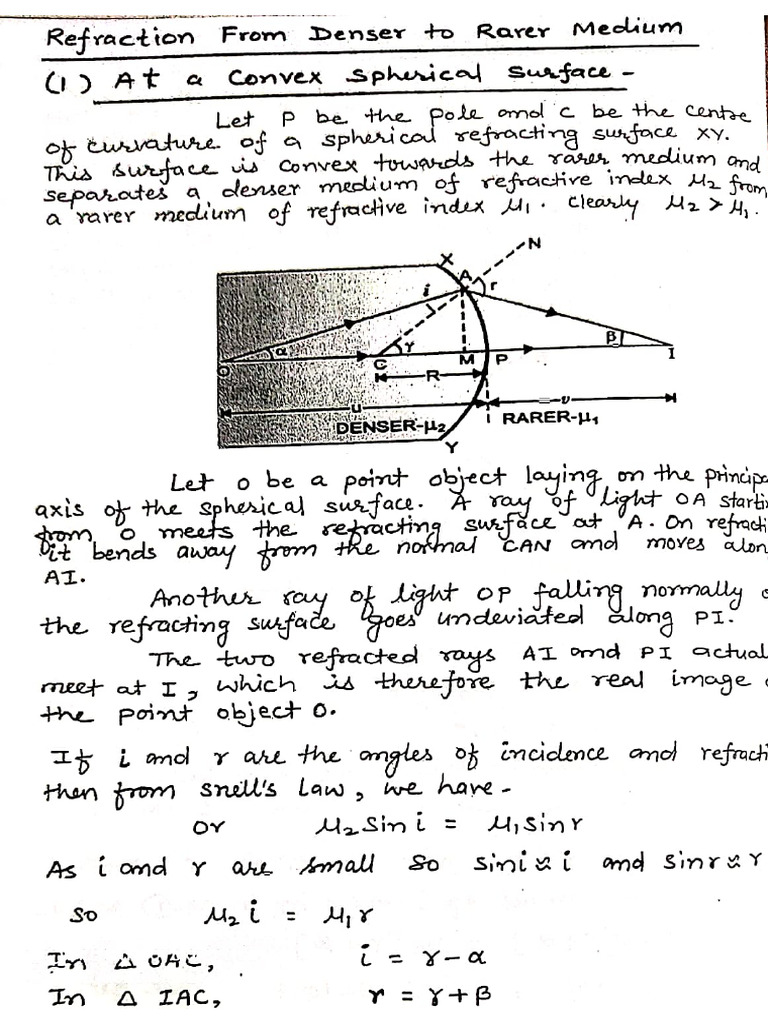 Refraction From Denser to Rarer Medium
(1) At a Convex Spherical Surface -
Let P be the pole and C be the centre
of curvature of a spherical refracting surface XY.
This surface is convex towards the rarer medium and
separates a denser medium of refractive index μ2 from
a rarer medium of refractive index μ1. Clearly μ2 > μ1.
N
X
A
i
r
α
γ
β
O
C
M
P
I
R
u
v
DENSER-μ2
RARER-μ1
Y
Let O be a point object laying on the princip
axis of the spherical surface. A ray of light OA starti
from O meets the refracting surface at A. On refracti
it bends away from the normal CAN and moves alon
AI.
Another ray of light OP falling normally o
the refracting surface goes undeviated along PI.
The two refracted rays AI and PI actual
meet at I, which is therefore the real image o
the point object O.
If i and r are the angles of incidence and refracti
then from snell's Law, we have -
or μ2 sin i = μ1 sin r
As i and r are small so sin i ≈ i and sin r ≈ r
so μ2 i = μ1 r
In △ OAC, i = γ - α
In △ IAC, r = γ + β